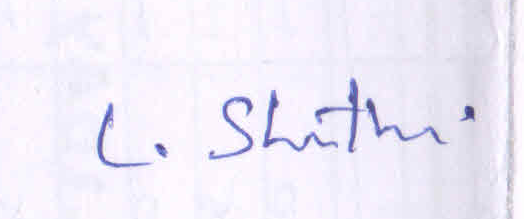 L. Shruthi